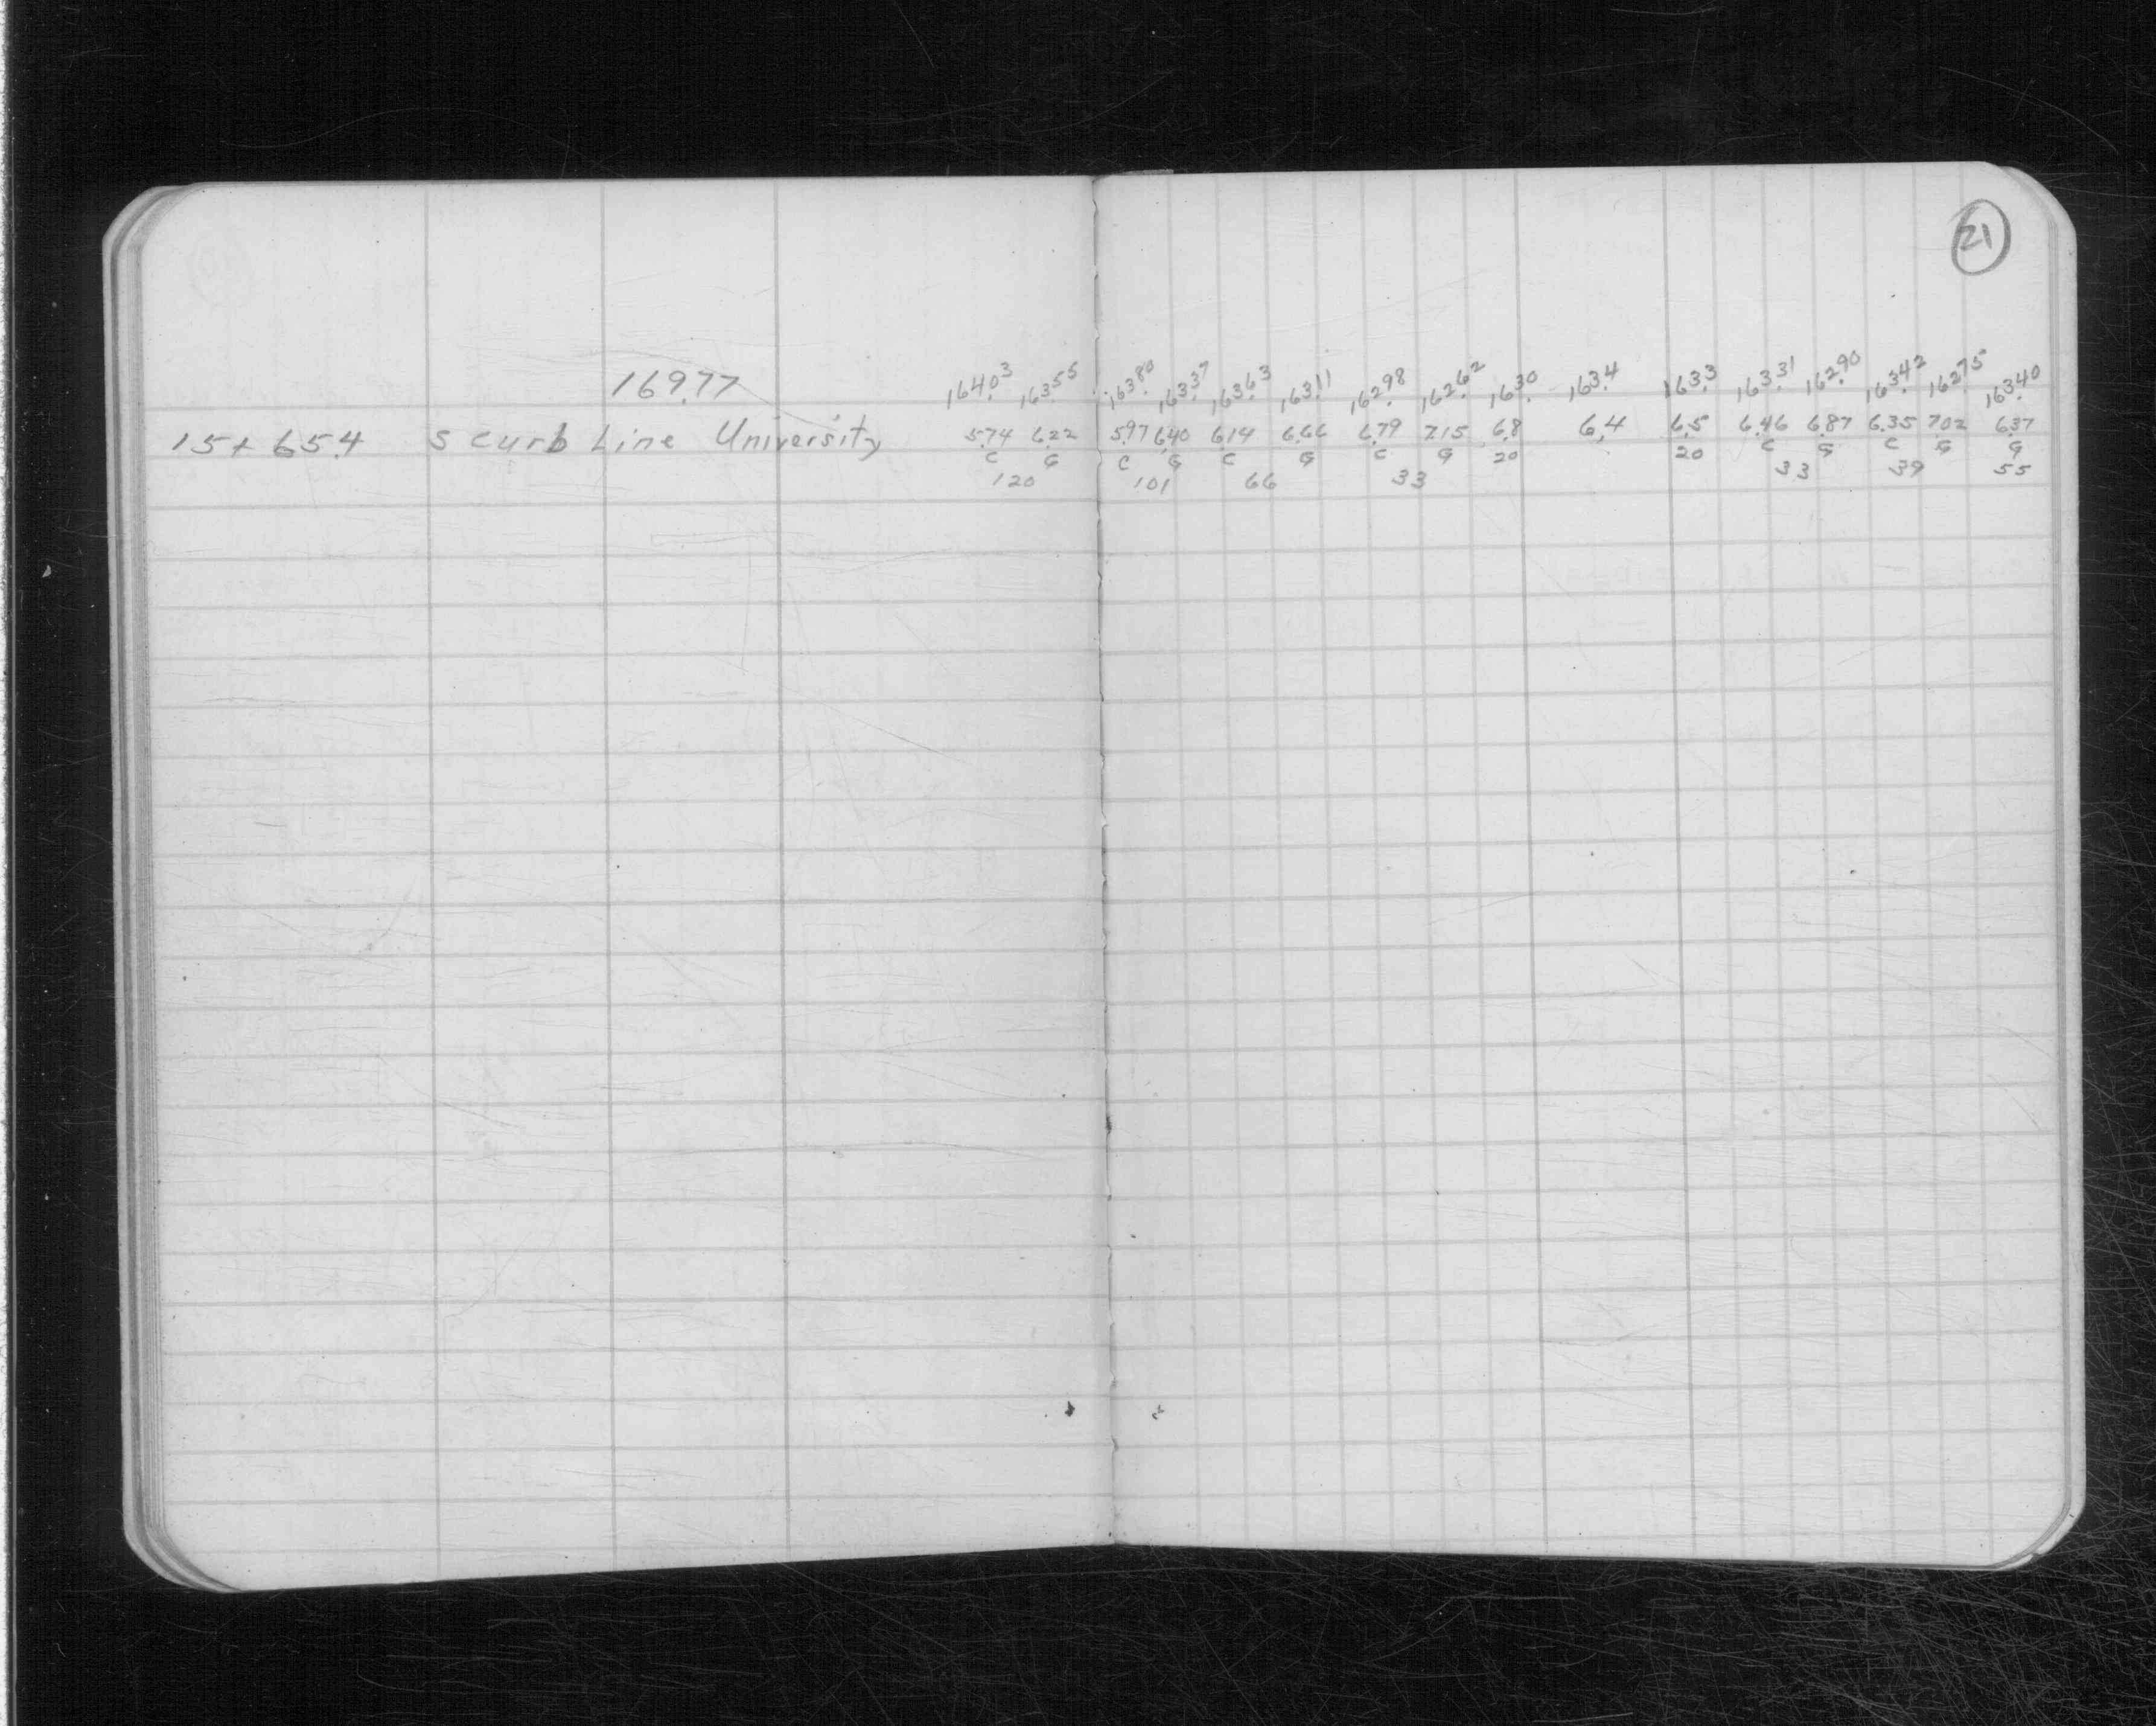 21
169.77 164.03 163.55 163.80 163.37 163.63 163.11 162.98 162.62 163.0 163.4 163.3 163.31 162.90 163.42 162.75 163.40
15+65.4 S Curb Line University 5.74 6.22 5.97 6.40 6.14 6.66 6.79 7.15 6.8 6.4 6.5 6.46 6.87 6.35 7.02 6.37
C G C G C G C G 20 20 C G C G G
120 101 66 33 33 39 55